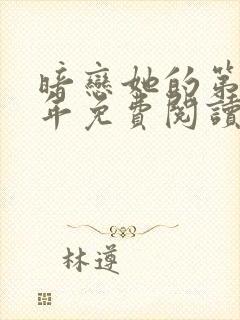 暗戀她的第
年免費閱讀
林遵